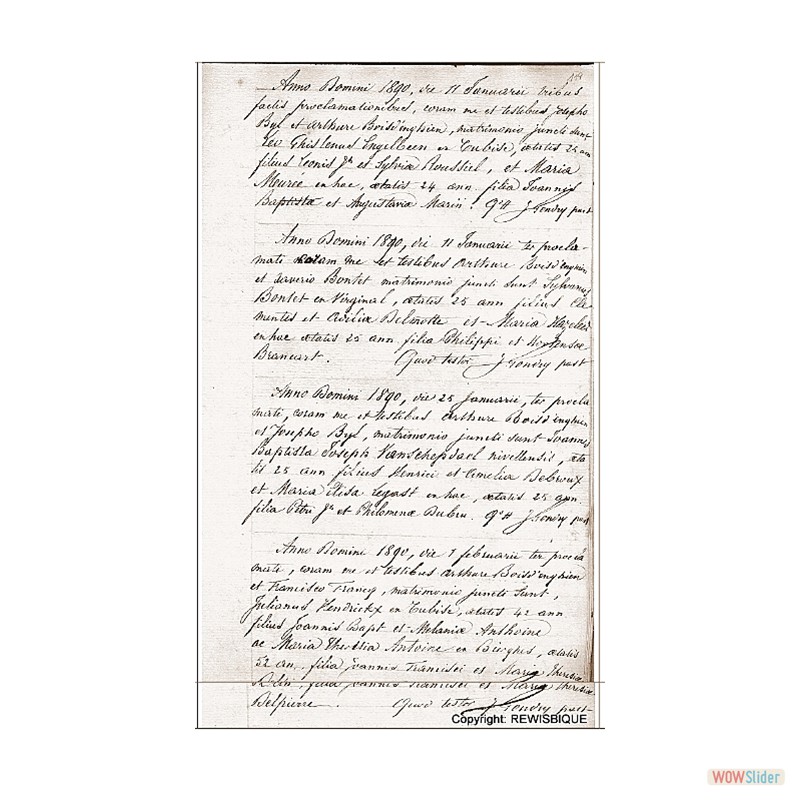 Anno Domini 1890, die 11 Januarii tribus
factis proclamationibus, coram me et testibus Josepho
Byl et Arthure Boisd'enghien, matrimonio juncti sunt
Leo Ghislenus Engelbeen ex Tubise, ætatis 25 ann
filius Leonis Jh et Sylvia Roussiel, et Maria
Meurée ex hac, ætatis 24 ann. filia Joannis
Baptista et Augustavia Marin. J Gondry past
Anno Domini 1890, die 11 Januarii ter procla-
mati coram me et testibus Arthure Boisd'enghien
et Xaverio Bontet matrimonio juncti sunt Sylvanus
Bontet ex Virginal, ætatis 25 ann filius Cle
mentis et Delmotte et Maria
ex hac ætatis 25 ann. filia Philippi et Hortensæ
Brancart. Quod testor J Gondry past
Anno Domini 1890, die 25 Januarii, ter procla
mati, coram me et testibus Arthure Boisd'enghien
et Josepho Byl, matrimonio juncti sunt Joannes
Baptista Joseph Vanschepdael nivellensis, æta
tis 25 ann. filius Henrici et Amelia Debroux
et Maria Elisa Legast ex hac, ætatis 25 ann
filia Petri Jh et Philomenæ Dubru. J Gondry past
Anno Domini 1890, die 1 februarii ter procla
mati, coram me et testibus Arthure Boisd'enghien
et Francisco Francq, matrimonio juncti sunt,
Julianus Hendrickx ex Tubise, ætatis 42 ann
filius Joannis Bapt et Melania Anthoine
ac Maria Theresia Antoine ex Bierghes, ætatis
52 an. filia Joannis Francisci et Maria Theresia
filia Joannis Francisci et Maria Theresia
Delpierre. Quod testor J Gondry past
Copyright: REWISBIQUE
WOWSlider